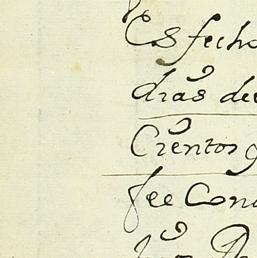 Es fecho
dias de
Cientos y
fee Con